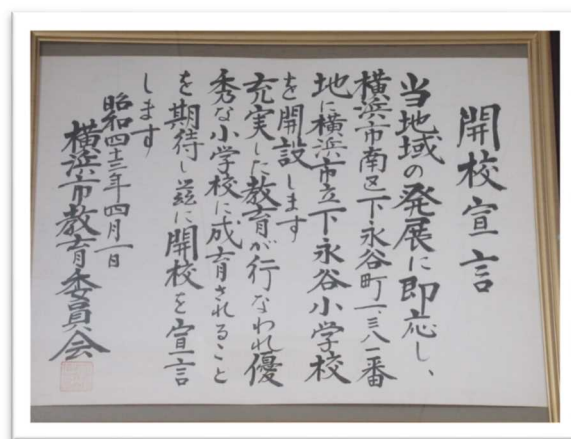 開校宣言
当地域の発展に即応し、
横浜市南区下永谷町一、三八一番
地に横浜市立下永谷小学校
を開設します
充実した教育が行なわれ優
秀な小学校に成育されること
を期待し茲に開校を宣言
します
昭和四十三年四月一日
横浜市教育委員会